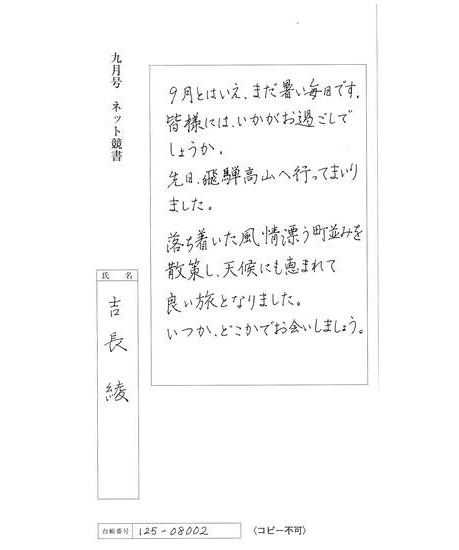 九月号 ネット競書
9月とはいえ、まだ暑い毎日です。
皆様には、いかがお過ごしで
しょうか。
先日、飛騨高山へ行ってまいり
ました。
落ち着いた風情漂う町並みを
散策し、天候にも恵まれて
良い旅となりました。
いつか、どこかでお会いしましょう。
氏名
吉長綾
台帳番号 125-08002
〈コピー不可〉